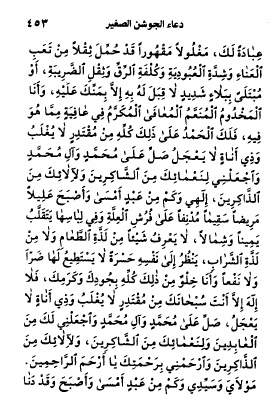 دعاء الجوشن الصغير ٤٥٣
عِبَادَةً لَكَ، مَغْلُولاً مَقْهُوراً قَدْ حُمِلَ ثِقْلاً مِنْ تَعَبِ
الْعَنَاءِ وَشِدَّةِ الْعُبُودِيَّةِ وَكُلْفَةِ الرِّقِّ وَثِقْلِ الضَّرِيبَةِ، أَوْ
مُبْتَلَىً بِبَلَاءٍ شَدِيدٍ لَا قِبَلَ لَهُ بِهِ إِلاَّ بِمَنِّكَ عَلَيْهِ، وَأَنَا
الْمَخْدُومُ الْمُنَعَّمُ الْمُعَافَى الْمُكَرَّمُ فِي عَافِيَةٍ مِمَّا هُوَ
فِيهِ، فَلَكَ الْحَمْدُ عَلَى ذَلِكَ كُلِّهِ مِنْ مُقْتَدِرٍ لَا يُغْلَبُ
وَذِي أَنَاةٍ لَا يَعْجَلُ صَلِّ عَلَى مُحَمَّدٍ وَآلِ مُحَمَّدٍ
وَاجْعَلْنِي لِنَعْمَائِكَ مِنَ الشَّاكِرِينَ وَلآلَائِكَ مِنَ
الذَّاكِرِينَ، إِلَهِي وَكَمْ مِنْ عَبْدٍ أَمْسَى وَأَصْبَحَ عَلِيلاً
مَرِيضاً سَقِيماً مُدْنِفاً عَلَى فُرُشِ الْعِلَّةِ وَفِي لِبَاسِهَا يَتَقَلَّبُ
يَمِيناً وَشِمَالاً، لَا يَعْرِفُ شَيْئاً مِنْ لَذَّةِ الطَّعَامِ وَلَا مِنْ
لَذَّةِ الشَّرَابِ، يَنْظُرُ إِلَى نَفْسِهِ حَسْرَةً لَا يَسْتَطِيعُ لَهَا ضَرّاً
وَلَا نَفْعاً وَأَنَا خِلْوٌ مِنْ ذَلِكَ كُلِّهِ بِجُودِكَ وَكَرَمِكَ، فَلَا
إِلَهَ إِلاَّ أَنْتَ سُبْحَانَكَ مِنْ مُقْتَدِرٍ لَا يُغْلَبُ وَذِي أَنَاةٍ لَا
يَعْجَلُ، صَلِّ عَلَى مُحَمَّدٍ وَآلِ مُحَمَّدٍ وَاجْعَلْنِي لَكَ مِنَ
الْعَابِدِينَ وَلِنَعْمَائِكَ مِنَ الشَّاكِرِينَ، وَلآلَائِكَ مِنَ
الذَّاكِرِينَ وَارْحَمْنِي بِرَحْمَتِكَ يَا أَرْحَمَ الرَّاحِمِينَ.
مَوْلَايَ وَسَيِّدِي وَكَمْ مِنْ عَبْدٍ أَمْسَى وَأَصْبَحَ وَقَدْ دَنَا